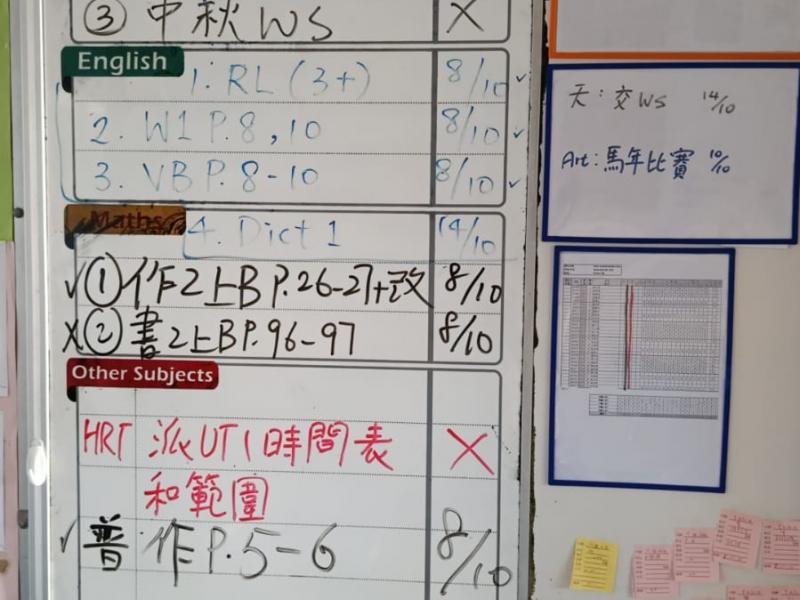 ③ 中秋WS X
English
1. RL (3+) 8/10 ✓
2. W1 P.8, 10 8/10 ✓
3. VB P.8-10 8/10 ✓
Maths
4. Dict 1 14/10
✓ ① 作2上B P.26-27+改 8/10
X ② 書2上B P.96-97 8/10
Other Subjects
HRT 派UT1時間表 X
和範圍
✓ 普 作P.5-6 8/10
天:交WS 14/10
Art:馬年比賽 10/10